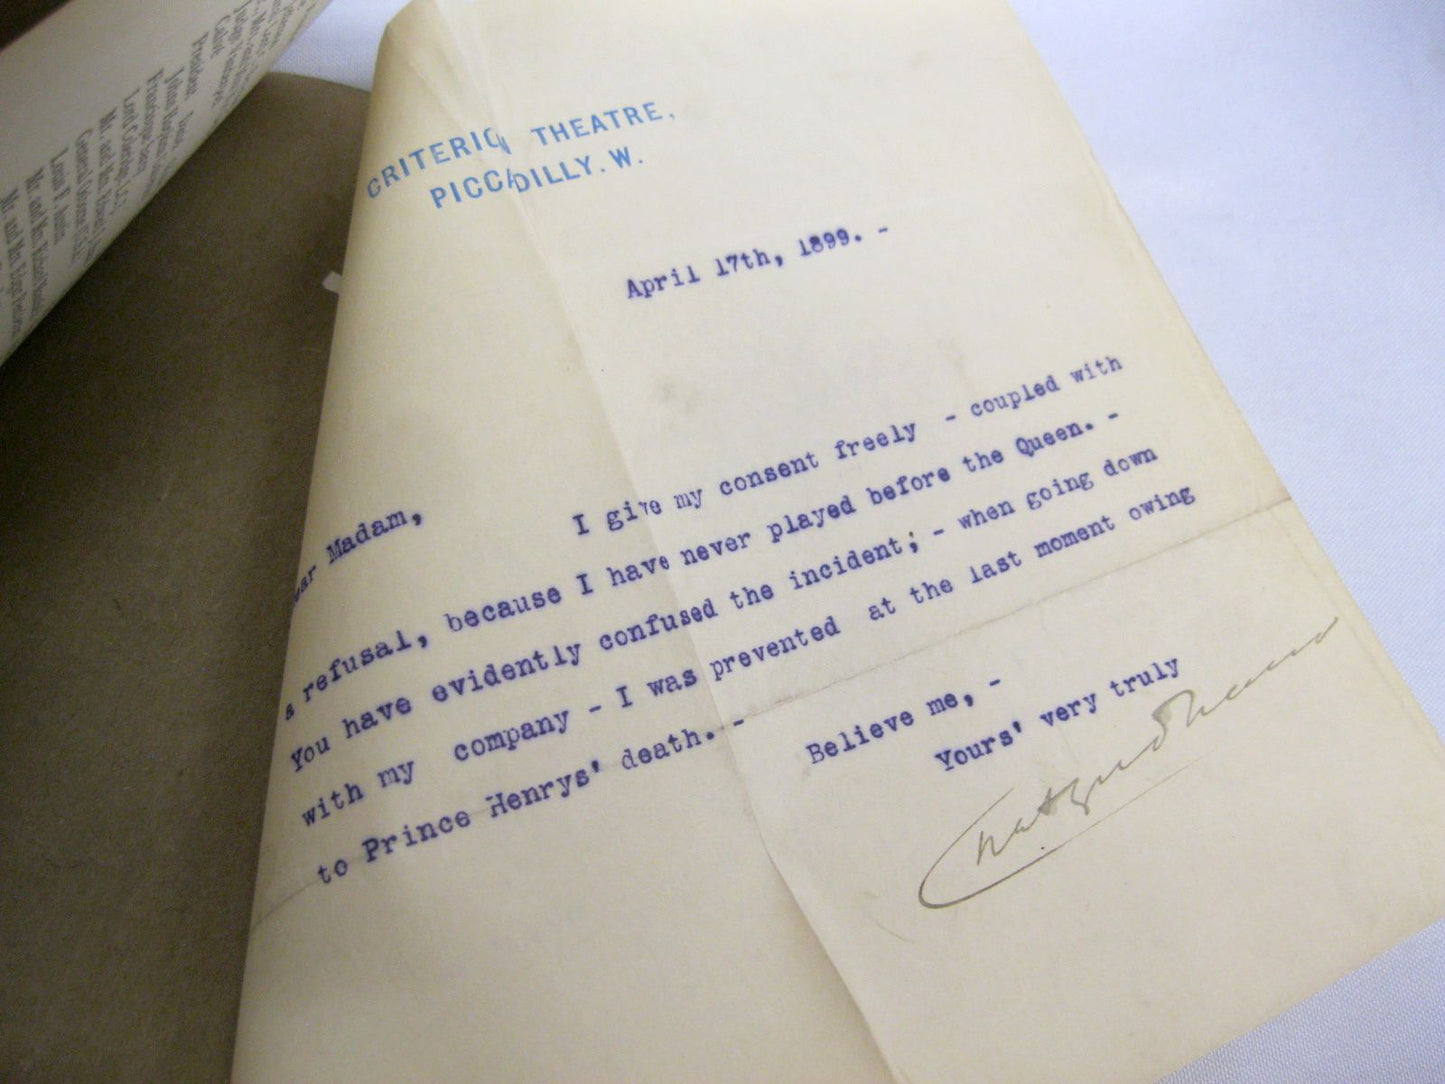 CRITERION THEATRE,
PICCADILLY. W.
April 17th, 1899. -
Madam,
I give my consent freely - coupled with
a refusal, because I have never played before the Queen. -
You have evidently confused the incident; - when going down
with my company - I was prevented at the last moment owing
to Prince Henrys' death. -
Believe me, -
Yours' very truly
President
Lord Coleridge,
Louis F. Austin